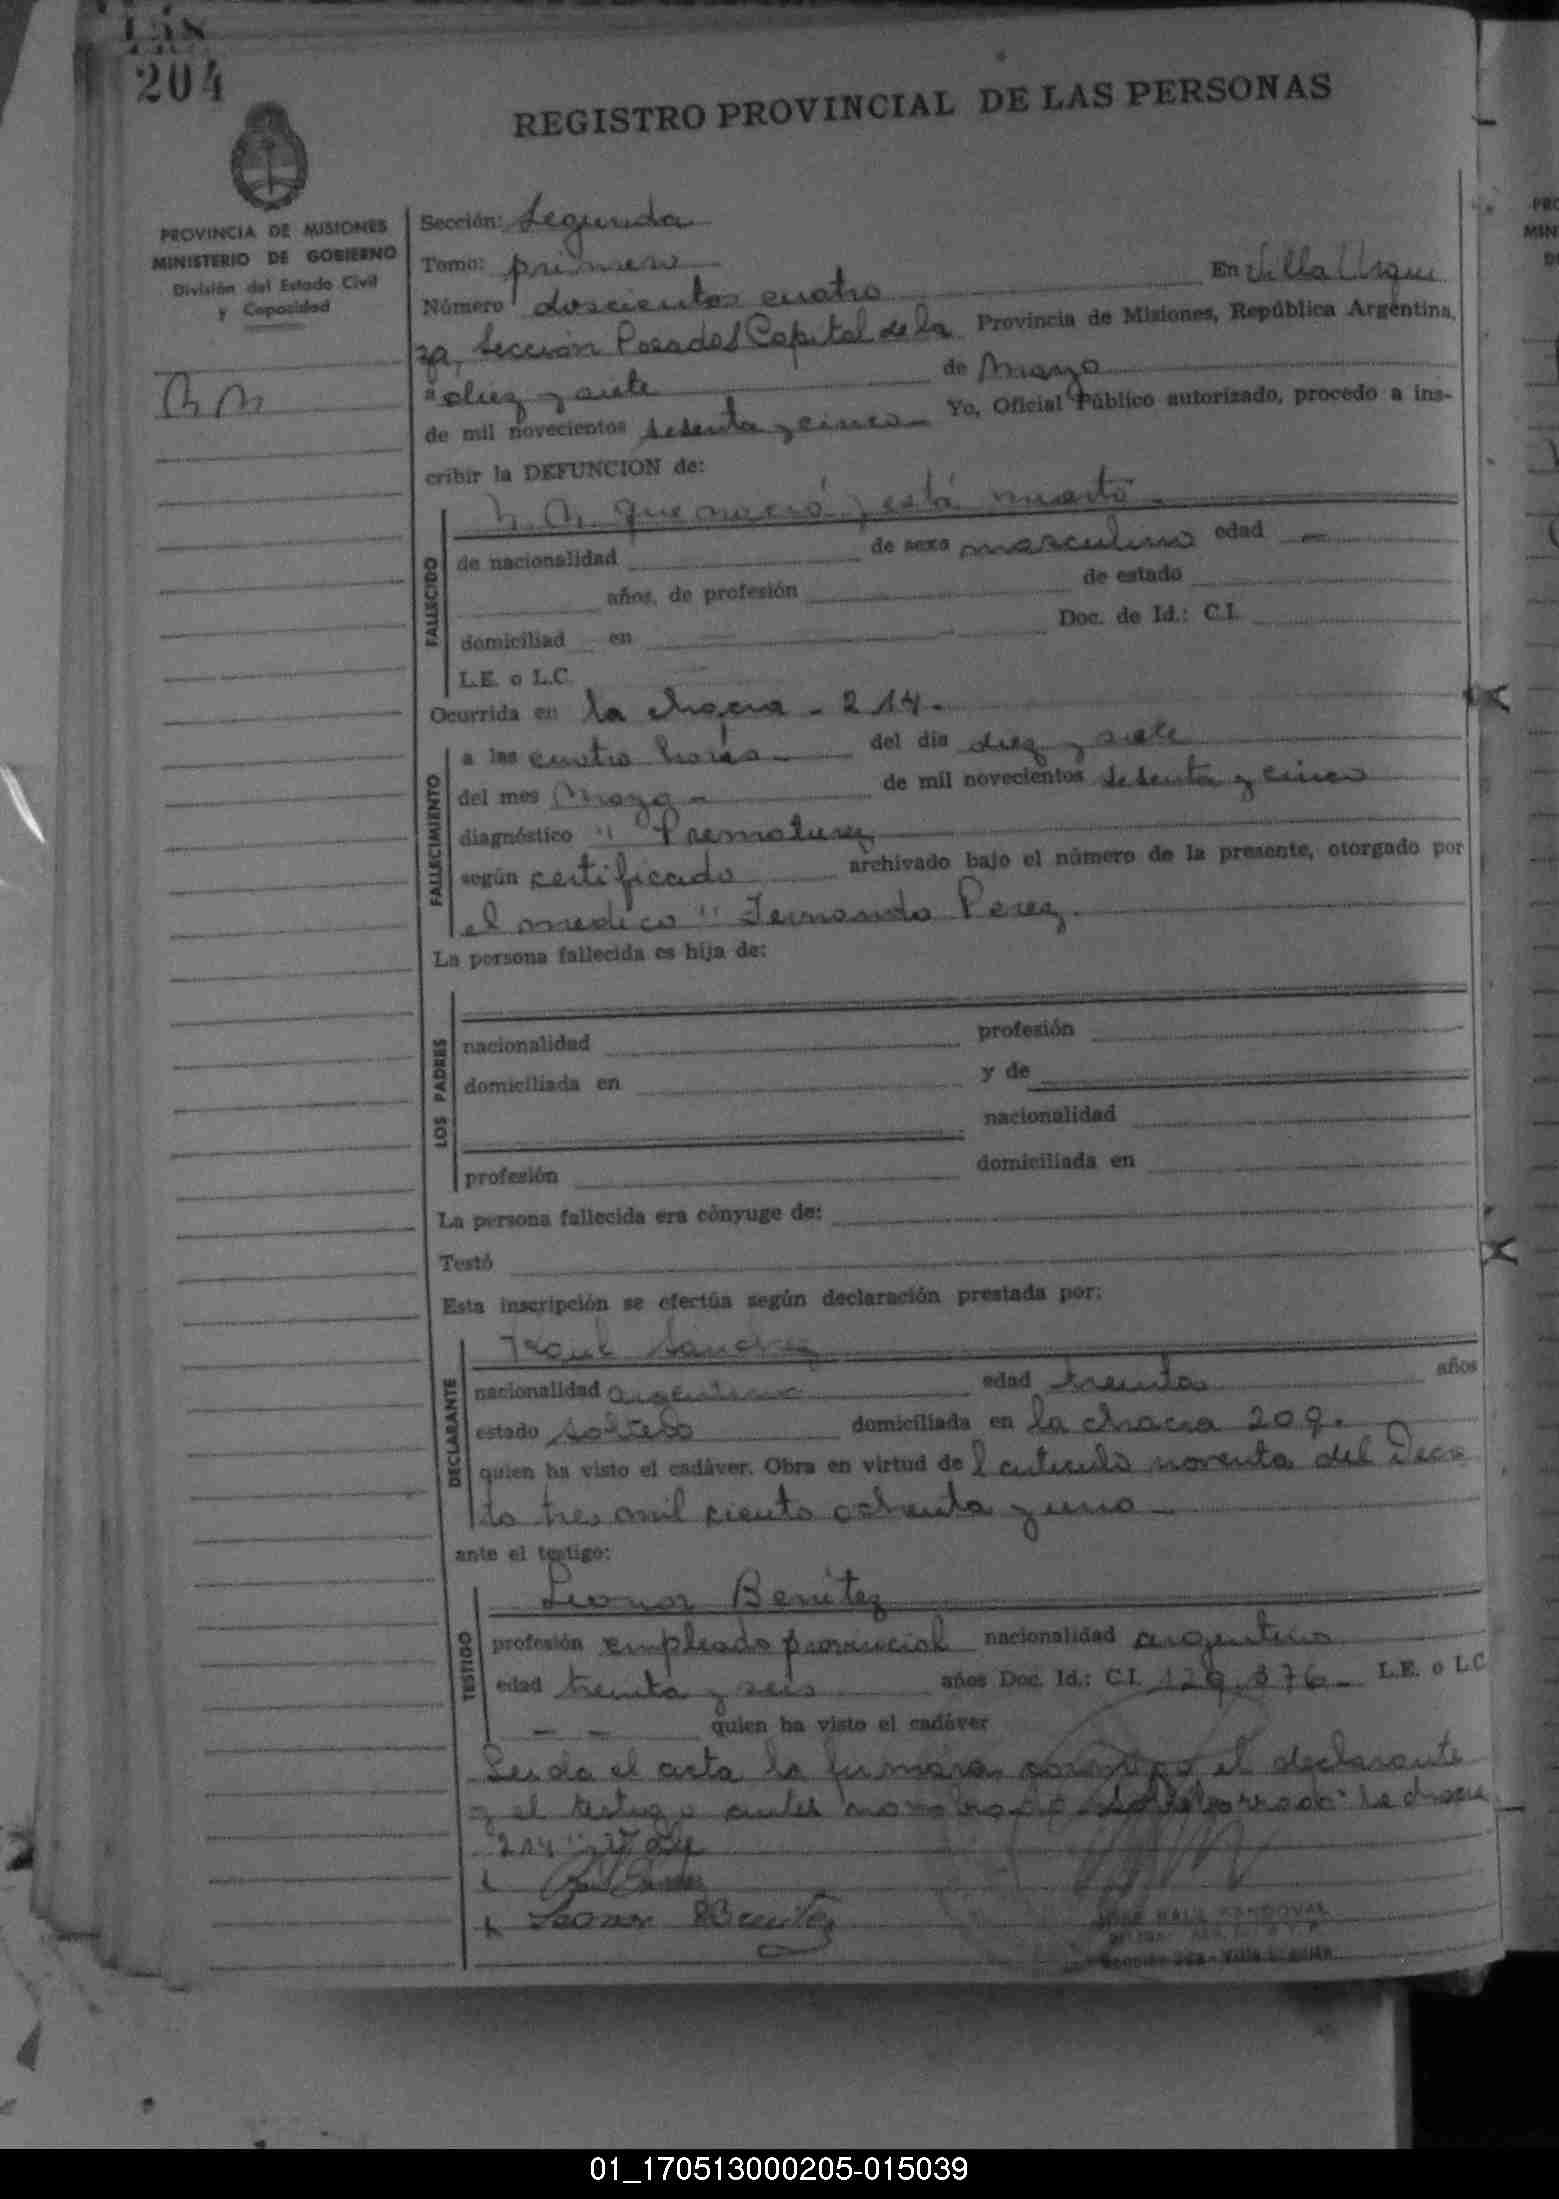 204
REGISTRO PROVINCIAL DE LAS PERSONAS
PROVINCIA DE MISIONES
MINISTERIO DE GOBIERNO
División del Estado Civil
y Capacidad
N N
Sección: Segunda
Tomo: primero
Número doscientos cuatro En Villa Urqui
za, Sección Posadas Capital de la Provincia de Misiones, República Argentina,
a diez y siete de Mayo
de mil novecientos sesenta y cinco Yo, Oficial Público autorizado, procedo a ins-
cribir la DEFUNCION de:
N. N. que nació y está muerto
FALLECIDO
de nacionalidad de sexo masculino edad —
años, de profesión de estado
domiciliad en Doc. de Id.: C.I.
L.E. o L.C.
Ocurrida en la chacra - 214.
FALLECIMIENTO
a las cuatro horas del día diez y siete
del mes Mayo de mil novecientos sesenta y cinco
diagnóstico " Prematurez
según certificado archivado bajo el número de la presente, otorgado por
el medico " Fernando Perez.
La persona fallecida es hija de:
LOS PADRES
nacionalidad profesión
domiciliada en y de
nacionalidad
profesión domiciliada en
La persona fallecida era cónyuge de:
Testó
Esta inscripción se efectúa según declaración prestada por:
DECLARANTE
Raul Sanchez
nacionalidad argentino edad treinta años
estado soltero domiciliada en la chacra 209.
quien ha visto el cadáver. Obra en virtud de l articulo noventa del Decre
to tres mil ciento ochenta y uno
ante el testigo:
TESTIGO
Leonor Benitez
profesión empleado provincial nacionalidad argentino
edad treinta y seis años Doc. Id.: C.I. 129.376 L.E. o L.C
— — quien ha visto el cadáver
Leida el acta la firmaron conmigo el declarante
y el testigo antes nombrado. Sobreborrado "la chacra
214"
Leonor Benitez
01_170513000205-015039